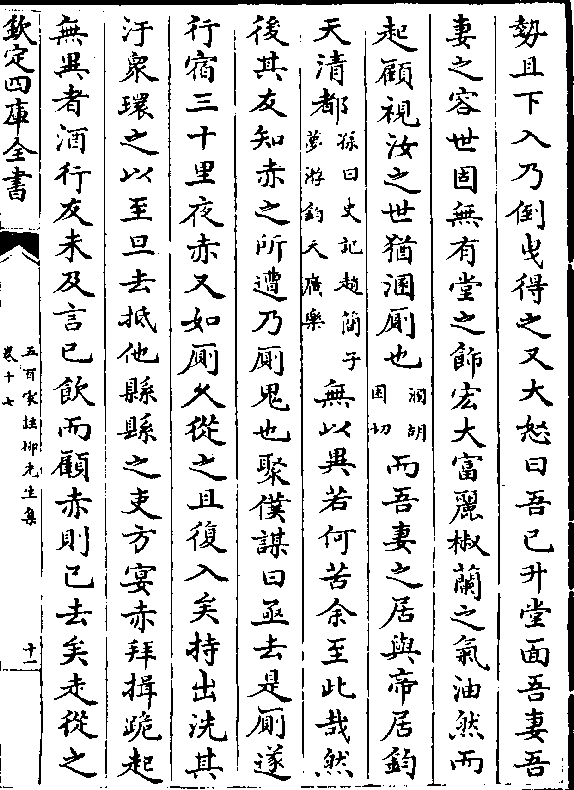 勢且下入乃倒曳得之又大怒曰吾已升堂面吾妻吾
妻之容世固無有堂之飾宏大富麗椒蘭之氣油然而
起顧視汝之世猶溷厠也溷胡困切而吾妻之居與帝居鈞
天清都孫曰史記趙簡子夢游鈞天廣樂無以異若何苦余至此哉然
後其友知赤之所遭乃厠鬼也聚僕謀曰亟去是厠遂
行宿三十里夜赤又如厠久從之且復入矣持出洗其
汙衆環之以至旦去抵他縣縣之吏方宴赤拜揖跪起
無異者酒行友未及言已飲而顧赤則已去矣走從之
欽定四庫全書
五百家註柳先生集
卷十七
十一